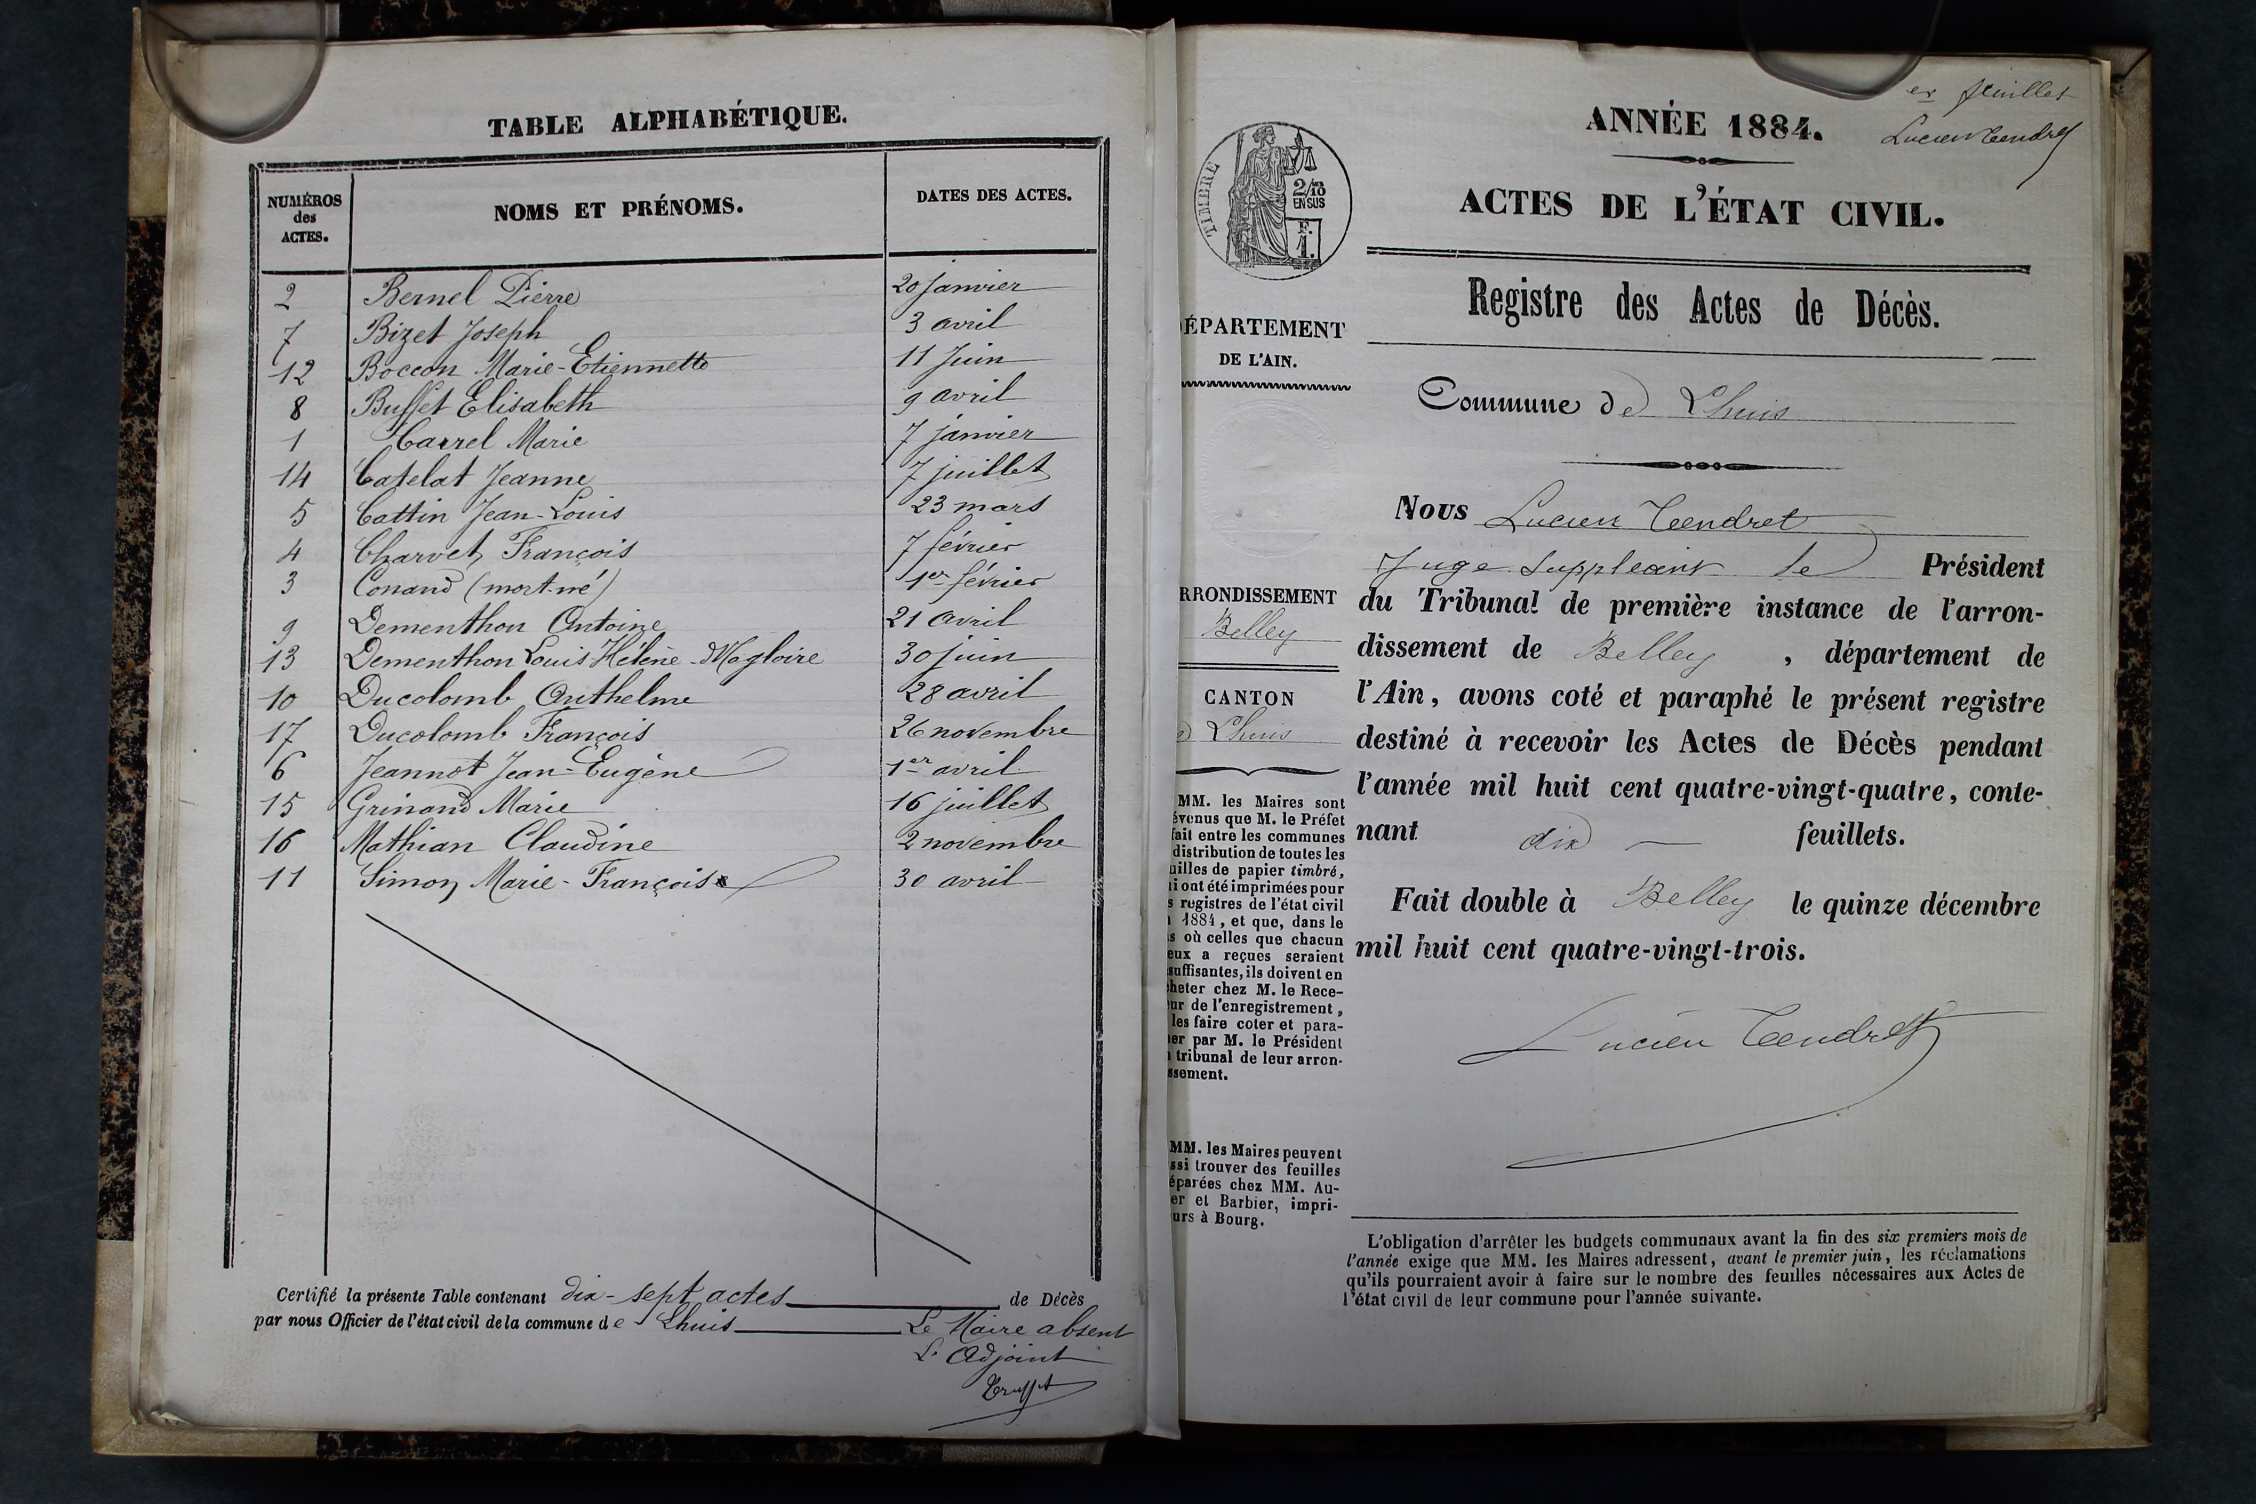 TABLE ALPHABÉTIQUE.
NUMÉROS des ACTES. NOMS ET PRÉNOMS. DATES DES ACTES.
2 Bernel Pierre 20 janvier
7 Bizet Joseph 3 avril
12 Boccon Marie-Etiennette 11 Juin
8 Buffet Elisabeth 9 avril
1 Carrel Marie 7 janvier
14 Catelat Jeanne 7 juillet
5 Cattin Jean-Louis 23 mars
4 Charvet François 7 février
3 Conand (mort-né) 1er février
9 Dementhon Antoine 21 avril
13 Dementhon Louis Hélène-Magloire 30 juin
10 Ducolomb Anthelme 28 avril
17 Ducolomb François 26 novembre
6 Jeannot Jean-Eugène 1er avril
15 Grinand Marie 16 juillet
16 Mathian Claudine 2 novembre
11 Simon Marie-Françoise 30 avril
Certifié la présente Table contenant dix-sept actes de Décès
par nous Officier de l'état civil de la commune de Lhuis
Le Maire absent
L'Adjoint
er feuillet
Lucien Tendret
ANNÉE 1884.
ACTES DE L'ÉTAT CIVIL.
TIMBRE
2/10
EN SUS
F.
1.
Registre des Actes de Décès.
ÉPARTEMENT
DE L'AIN.
Commune de Lhuis
Nous Lucien Tendret
Juge Suppléant le Président
du Tribunal de première instance de l'arron-
dissement de Belley, département de
l'Ain, avons coté et paraphé le présent registre
destiné à recevoir les Actes de Décès pendant
l'année mil huit cent quatre-vingt-quatre, conte-
nant dix feuillets.
Fait double à Belley le quinze décembre
mil huit cent quatre-vingt-trois.
Lucien Tendret
RRONDISSEMENT
Belley
CANTON
Lhuis
MM. les Maires sont
évenus que M. le Préfet
fait entre les communes
distribution de toutes les
uilles de papier timbré,
i ont été imprimées pour
s registres de l'état civil
1884, et que, dans le
s où celles que chacun
eux a reçues seraient
suffisantes, ils doivent en
heter chez M. le Rece-
ur de l'enregistrement,
les faire coter et para-
er par M. le Président
tribunal de leur arron-
ssement.
MM. les Maires peuvent
ssi trouver des feuilles
éparées chez MM. Au-
er et Barbier, impri-
urs à Bourg.
L'obligation d'arrêter les budgets communaux avant la fin des six premiers mois de
l'année exige que MM. les Maires adressent, avant le premier juin, les réclamations
qu'ils pourraient avoir à faire sur le nombre des feuilles nécessaires aux Actes de
l'état civil de leur commune pour l'année suivante.